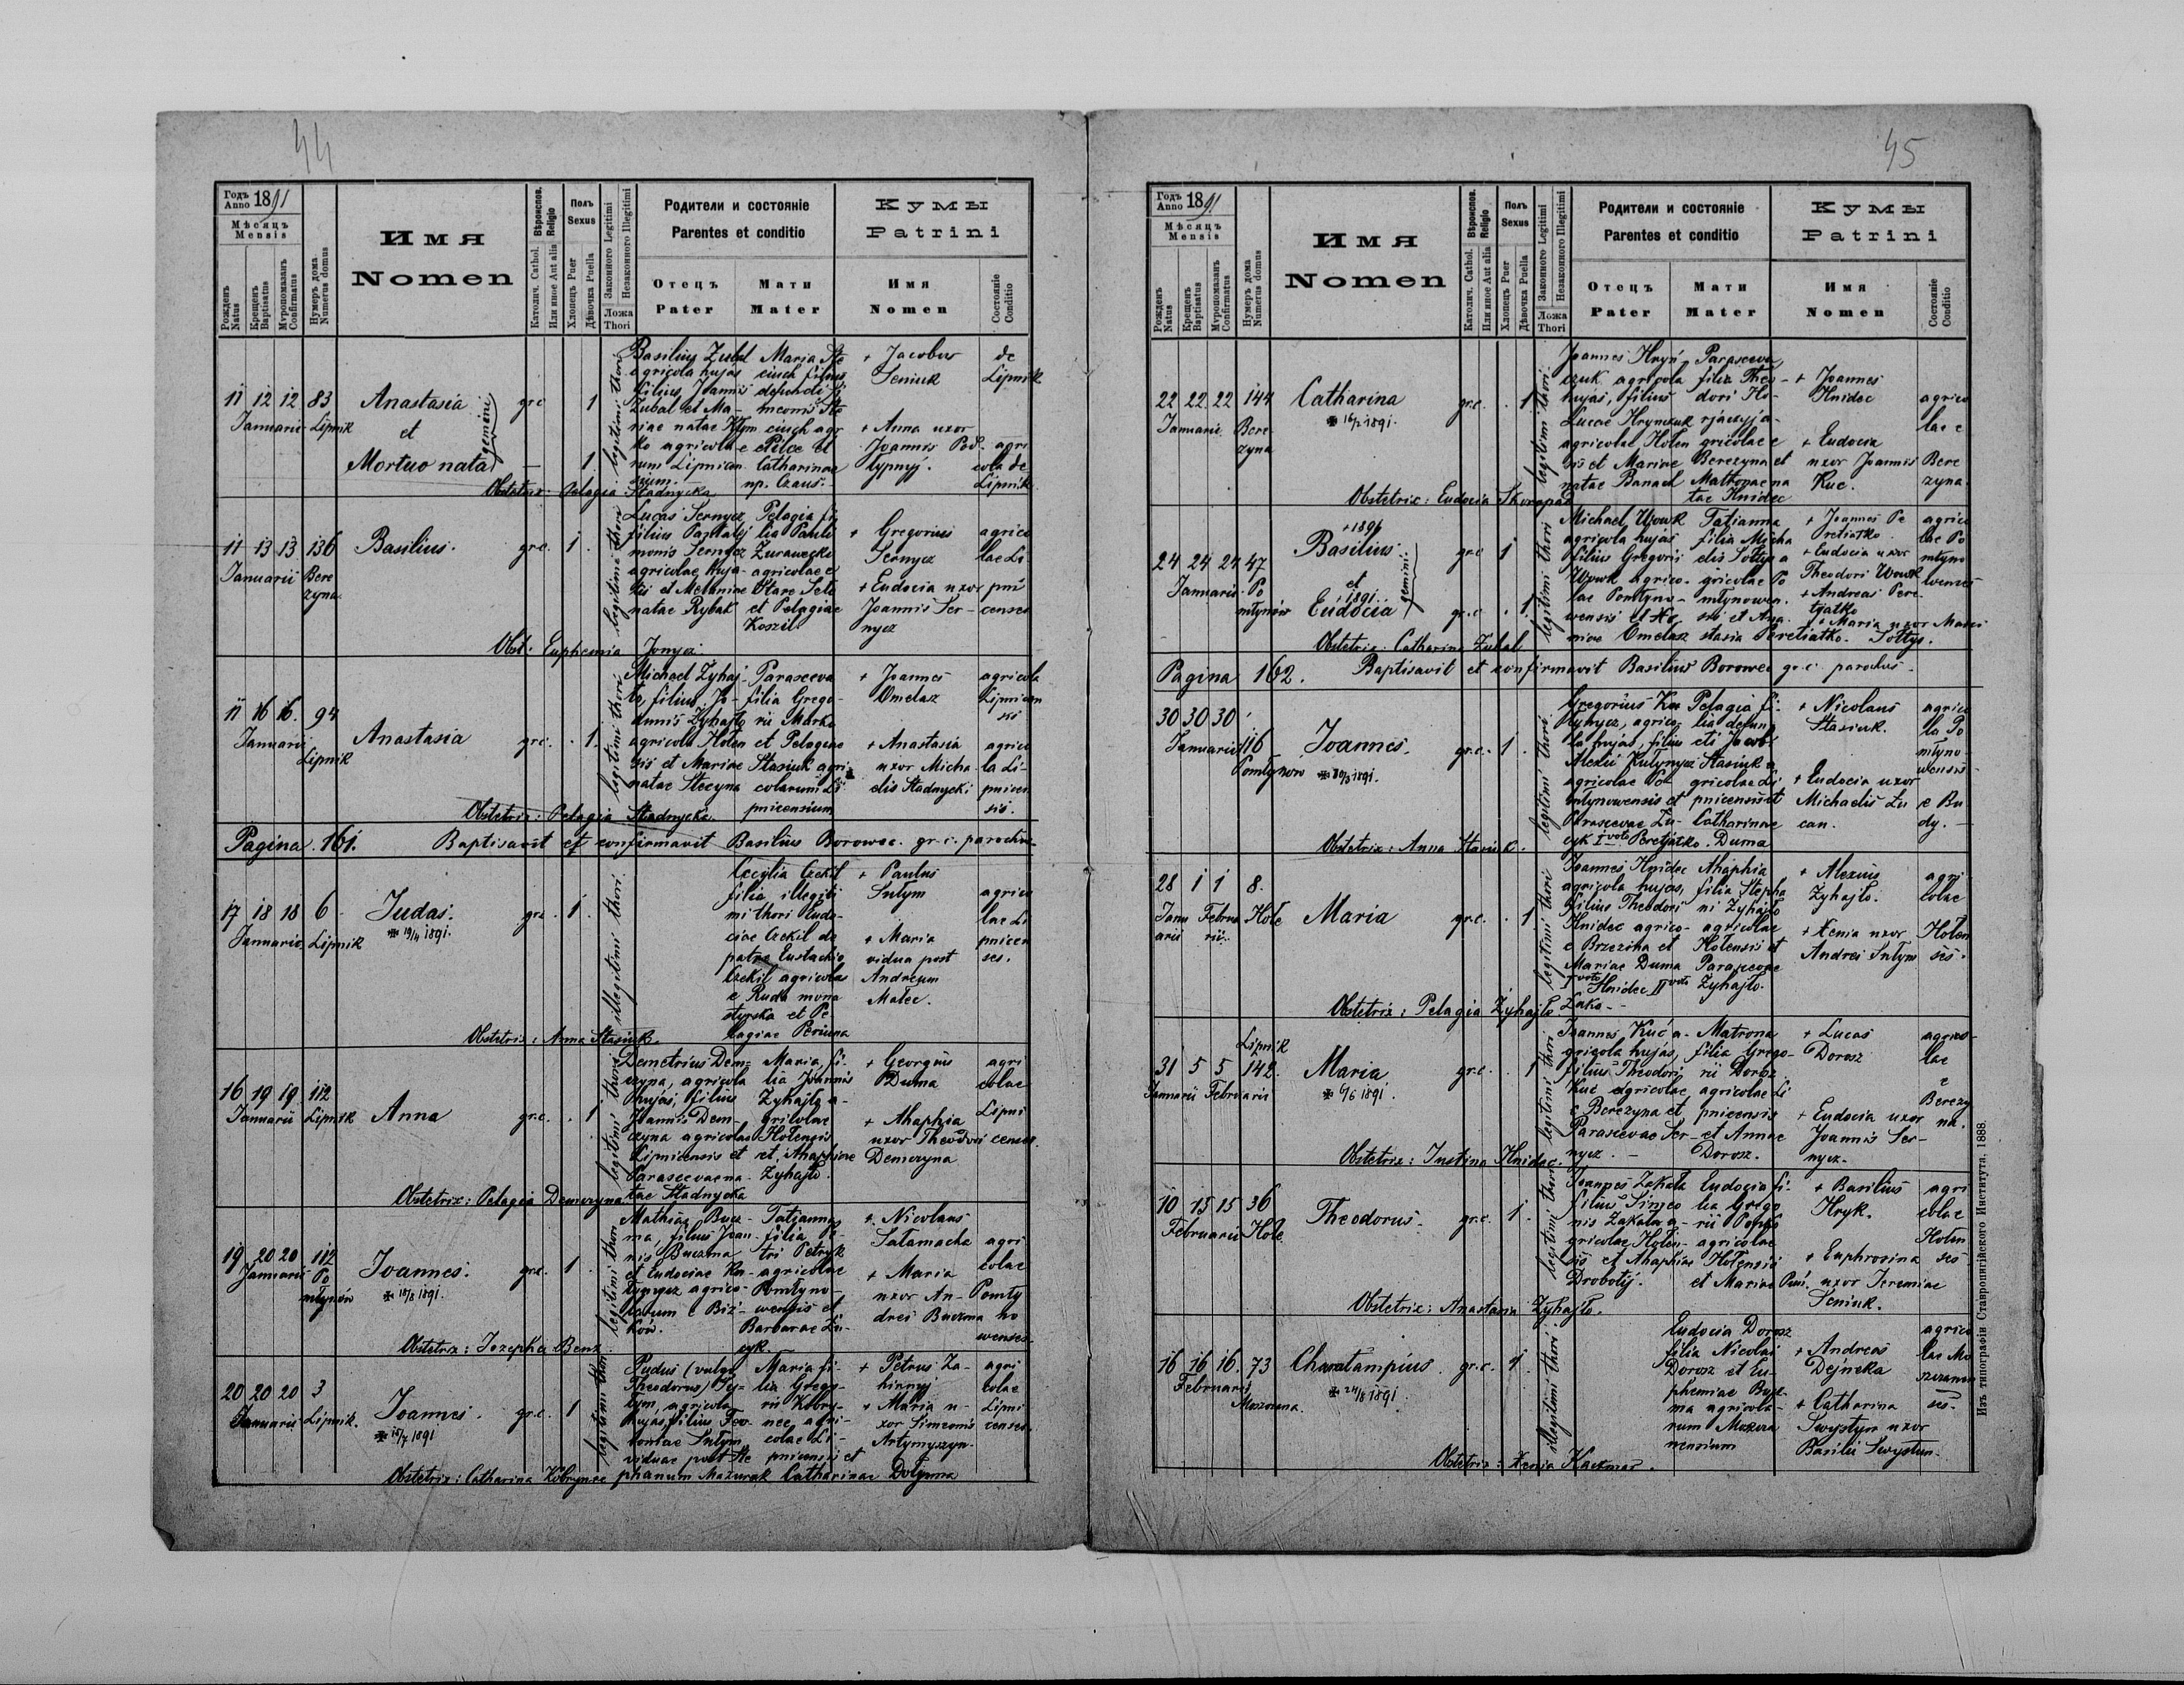 44
Годъ Anno 1891
Мѣсяцъ Mensis
Рожденъ Natus
Крещенъ Baptisatus
Муропомазанъ Confirmatus
Нумеръ дома Numerus domus
Имя Nomen
Вѣроиспов. Religio
Католич. Cathol.
Или иное Aut alia
Полъ Sexus
Хлопецъ Puer
Дѣвочка Puella
Законного Legitimi
Незаконного Illegitimi
Ложа Thori
Родители и состояніе
Parentes et conditio
Отецъ Pater
Мати Mater
Кумы
Patrini
Имя Nomen
Состояніе Conditio
11 12 12 83
Januarii Lipnik
Anastasia
et
Mortuo nata
gemini
gr.c 1
1
legitimi thori
Basilius Zubal
agricola hujas
filius Joannis
Zubal et Ma-
riae natae Klym
ko agricola-
rum Lipnicen
sium.
Maria Ste
ciuch filia
defuncti Si
meonis Ste
ciuch agr
e Pilce et
Catharinae
np. Czaus.
+ Jacobus
Seniuk
+ Anna uxor
Joannis Pod-
typnyj.
de
Lipnik
agri
cola de
Lipnik
Obstetrix: Pelagia Stadnycka
11 13 13 136
Januarii Bere
zyna
Basilius.
gr.c. 1.
legitimi thori
Lucas Sernycz
filius Pantalij
monis Sernycz
agricolae huja-
tis et Melaniae
natae Rybak
Pelagia fi
lia Pauli
Zurawecki
agricolae e
Stare Sele
et Pelagiae
Koszil
+ Gregorius
Sernycz
+ Eudocia uxor
Joannis Ser-
nycz
agrico
lae Li
pni
censes
Obst: Euphemia Jonyca
11 16 16. 94
Januarii
Lipnik
Anastasia
gr.c. . 1.
legitimi thori
Michael Zyhaj-
lo, filius Jo-
annis Zyhajlo
agricola Holen
sis et Mariae
natae Stecyna
Parasceva
filia Grego-
rii Marko
et Pelagiae
Stasiuk agri-
colarum Li
pnicensium
+ Joannes
Omelaz
+ Anastasia
uxor Micha-
elis Stadnycki
agricola
Lipnicen
sis
agrico
la Li-
pnicen
sis.
Obstetrix: Pelagia Stadnycka.
Pagina. 161. Baptisavit et confirmavit Basilius Borowec. gr.c. parochus
17 18 18 6
Januarii Lipnik
Judas.
19/4 1891.
gr.c. 1.
illegitimi thori.
Cecylia Czekil
filia illegiti
mi thori Eudo-
ciae Czekil de
patre Eustachio
Czekil agricolas
e Ruda mona
styrska et Pe-
lagiae Periuna
+ Paulus
Sutym
+ Maria
vidua post
Andream
Malec.
agrico
lae Li
pnicen
ses.
Obstetrix: Anna Stasiuk.
16 19 19 112
Januarii Lipnik
Anna
gr.c. . 1.
legitimi thori
Demetrius Dem-
czyna, agricola
hujas, filius
Joannis Dem-
czyna agricolae
Lipnicensis et
Parascevae na-
tae Stadnycka
Maria, fi-
lia Joannis
Zyhajlo a-
gricolae
Holensis
et Ahaphiae
Zyhajlo.
+ Georgius
Duma
+ Ahaphia
uxor Theodori
Demczyna
agri
colae
Lipni
censes.
Obstetrix: Pelagia Demczyna
19 20 20 112
Januarii Po
mlynów
Joannes.
18/8 1891.
gr.c. 1.
legitimi thori
Mathias Bucz-
ma, filius Joan-
nis Buczma
et Eudociae Ku-
tynycz agrico-
larum e Biż-
ków.
Tatjanna
filia Pe-
tri Petryk
agricolae
Pomlyno-
wensis et
Barbarae Lu-
cyk.
+ Nicolaus
Salamacha
+ Maria
uxor An-
drei Buczma
agri
colae
Pomly
no
wenses
Obstetrix: Jozepha Benz
20 20 20 3
Januarii Lipnik.
Joannes.
15/7 1891
gr.c. 1
legitimi thori
Pudus (vulgo
Theodorus) Su-
tym, agricola
hujas, filius Feo-
roniae Sutym
viduae post Ste
phanum Mazurak
Maria fi-
lia Grego-
rii Kobry-
nec, agri-
colae Li-
pnicensis et
Catharinae Dolynna
+ Petrus Za-
hirnyj
+ Maria u-
xor Simeonis
Artymyszyn
agri
colae
Lipni
censes.
Obstetrix: Catharina Kobrynec
45
Годъ Anno 1891
Мѣсяцъ Mensis
Рожденъ Natus
Крещенъ Baptisatus
Муропомазанъ Confirmatus
Нумеръ дома Numerus domus
Имя Nomen
Вѣроиспов. Religio
Католич. Cathol.
Или иное Aut alia
Полъ Sexus
Хлопецъ Puer
Дѣвочка Puella
Законного Legitimi
Незаконного Illegitimi
Ложа Thori
Родители и состояніе
Parentes et conditio
Отецъ Pater
Мати Mater
Кумы
Patrini
Имя Nomen
Состояніе Conditio
22 22 22 144
Januarii Bere-
zyna
Catharina
16/2 1891.
gr.c. . 1.
legitimi thori.
Joannes Hryń-
czuk agricola
hujas, filius
Lucae Hrynczuk
agricolae Holen
sis et Mariae
natae Banach
Parasceva
filia Theo-
dori Ho-
gricolae e
Berezyna et
Matronae na
tae Hnidec
+ Joannes
Hnidec
+ Eudocia
uxor Joannis
Kuc.
agrico
lae e
Bere
zyna.
Obstetrix: Eudocia Skoropad
24 24 24 47
Januarii Po
mlynów
+ 1891
Basilius
et
+ 1891.
Eudocia
gemini.
gr.c 1
gr.c. . 1.
legitimi thori
Michael Wowk
agricola hujas
filius Gregorii
Wowk agrico-
lae Pomlyno-
wensis et
niae Omelaz
Tatianna
filia Micha
elis Soltys a
gricolae Po
mlynowen.
sis et Ana-
stasia Peretiatko.
+ Joannes Pe
retiatko.
+ Eudocia uxor
Theodori Wowk
+ Andreas Pere-
tyatko
+ Maria uxor
Soltys.
agrico
lae Po
mlyno
wenses
Obstetrix: Catharina Zubal
Pagina 162. Baptisavit et confirmavit Basilius Borowec gr.c. parochus.
30 30 30
Januarii 116
Pomlynów
Joannes.
30/3 1891.
gr.c. 1.
legitimi thori
Gregorius Ku
tynycz, agrico-
la hujas, filius
Alexii Kutynycz
agricolae Po-
mlynowensis et
Parascevae Lu-
cyk I voto Peretjatko.
Pelagia fi-
lia defun
cti Jacobi
Stasiuk a
gricolae Li
pnicensis et
Catharinae
Duma
+ Nicolaus
Stasiuk.
+ Eudocia uxor
Michaelis Lu
can.
agrico
la Po
mlyno-
wensis
e Bu
dy.
Obstetrix: Anna Stasiuk.
28 1 1 8.
Janu Februa Hole
arii rii.
Maria
gr.c. . 1.
legitimi thori
Joannes Hnidec
agricola hujas,
filius Theodori
Hnidec agrico-
e Brzezina et
Mariae Duma
I voto Hnidec II voto
Zaka-
Ahaphia
filia Stepha
ni Zyhajlo
agricolae
Holensis et
Parascevae
Zyhajlo.
+ Alexius
Zyhajlo.
+ Xenia uxor
Andrei Sutym
agri
colae
Holen
ses.
Obstetrix: Pelagia Zyhajlo
Lipnik
31 5 5 142.
Januarii Februarii
Maria
6/6 1891.
gr.c. . 1
legitimi thori
Joannes Kuć a-
gricola hujas,
filius Theodori
Kuć agricolae
e Berezyna et
Parascevae Ser-
nycz.
Matrona
filia Grego-
rii Dorosz
agricolae Li
pnicensis
et Annae
Dorosz.
+ Lucas
Dorosz
+ Eudocia uxor
Joannis Ser-
nycz.
agrico-
lae
e
Berezy
na.
Obstetrix: Justina Hnidec.
10 15 15 36
Februarii Hole
Theodorus.
gr.c. 1.
legitimi thori
Joannes Zakala
filius Simeo
nis Zakala a-
gricolae Holen-
sis et Ahaphiae
Drobotij.
Eudocia fi-
lia Grego
rii
agricolae
Holensis
et Mariae
+ Basilius
Hryk.
+ Euphrosina
uxor Jeremiae
Seniuk.
agri
colae
Holen
ses
Obstetrix: Anastasia Zyhajlo.
16 16 16. 73
Februarii
Moszczana.
Charalampius
24/8 1891.
gr.c. 1.
illegitimi thori
Eudocia Dorosz
filia Nicolai
Dorosz et Eu-
phemiae Bucz-
ma agricola-
rum Moszcza
nensium
+ Andreas
Dejneka
+ Catharina
Swystun uxor
Basilii Swystun.
agrico
lae Mo
szczanen
ses.
Obstetrix: Xenia Kaczmar.
Изъ типографіи Ставропигійского Института. 1888.